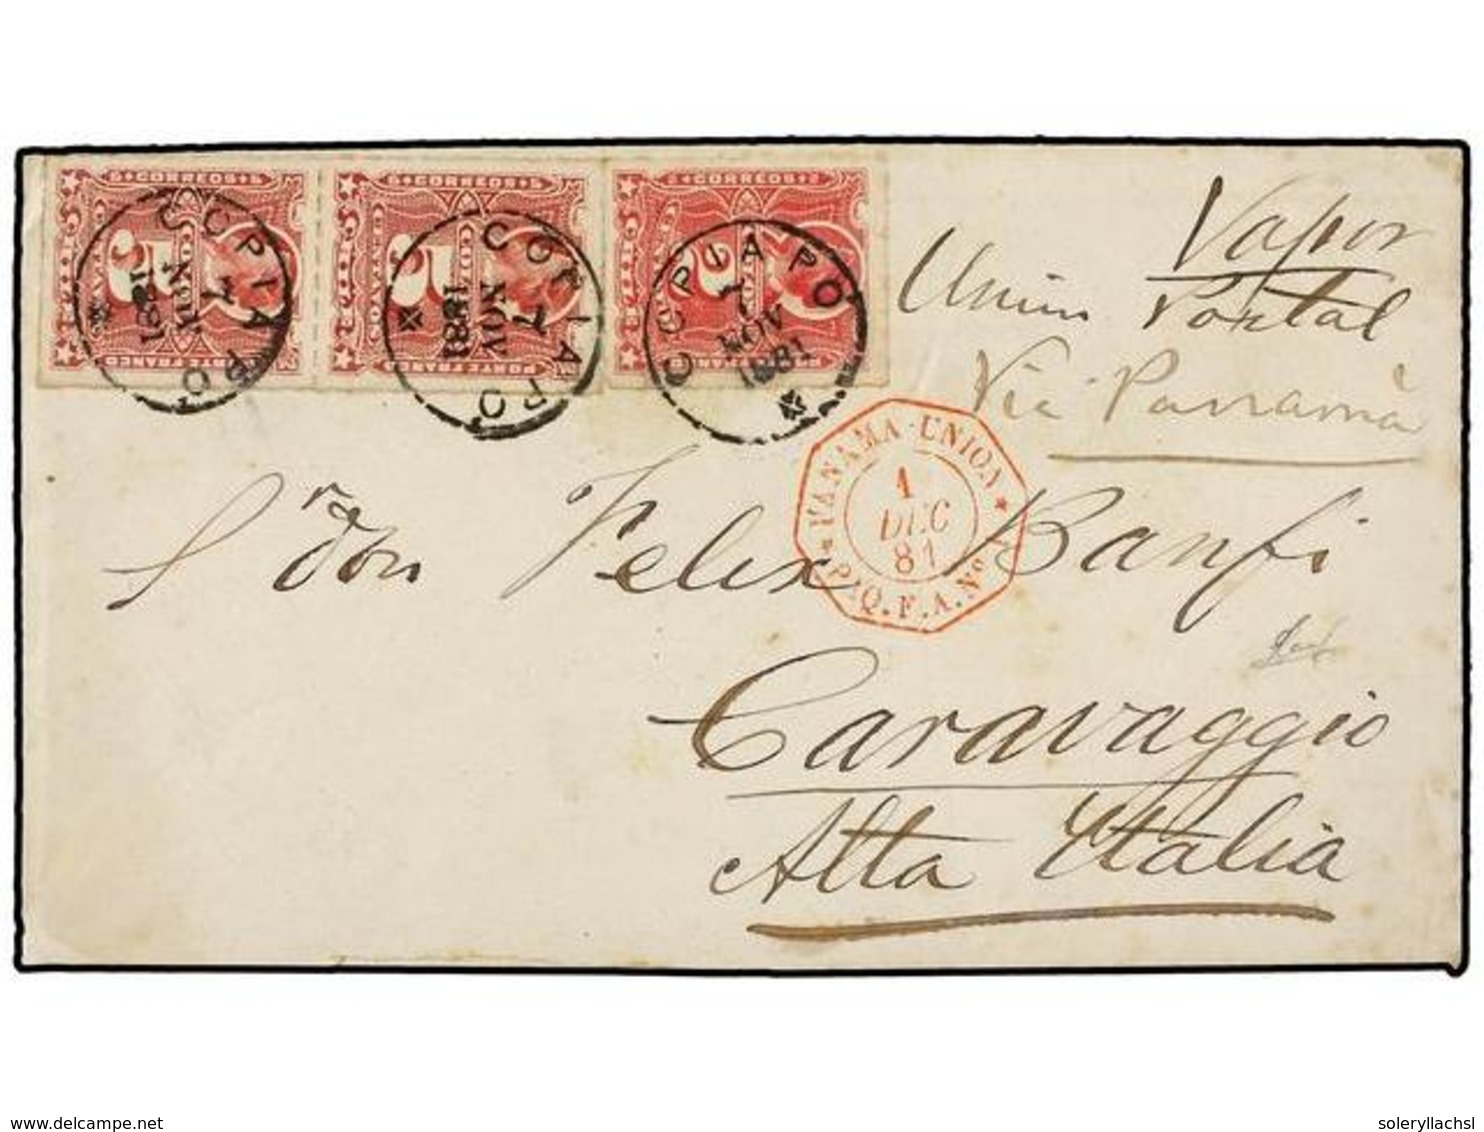 5 CORREOS 5
5 CORREOS 5
5 CORREOS 5
5
5
5
PORTE FRANCO
PORTE FRANCO
PORTE FRANCO
COPIAPO
7
NOV
1881
COPIAPO
7
NOV
1881
COPIAPO
7
NOV
1881
Vapor
Union Postal
Via Panamà
PANAMA-UNION
1
DEC
81
PAQ.F.A.Nº
Sr don Felix Banfi
Caravaggio
Alta Italia
delcampe.net
soleryllachsl